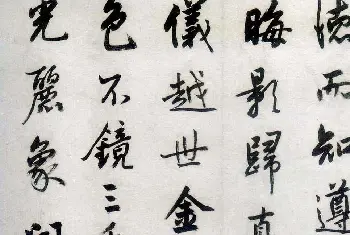 德而知遵
晦影歸真
儀越世金
色不鏡三
光麗象